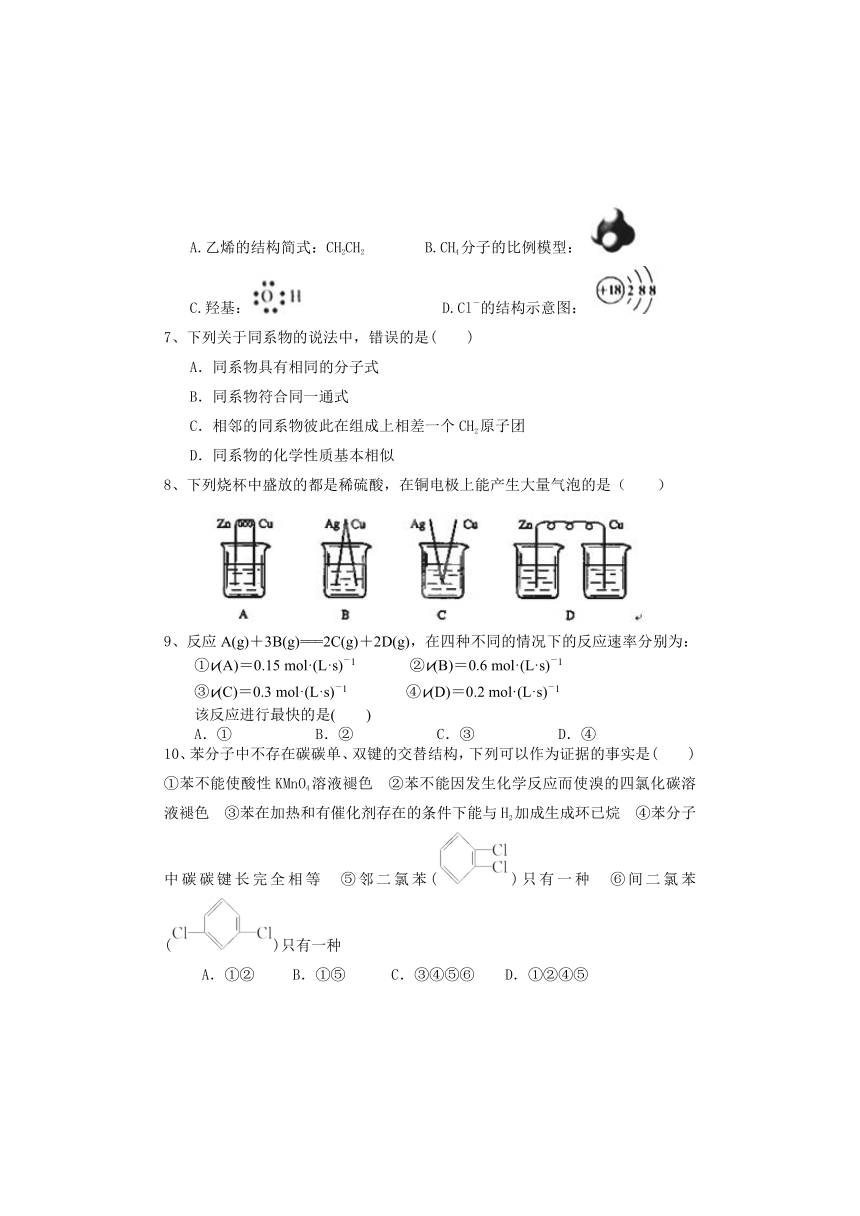 A.乙烯的结构简式：CH₂CH₂ B.CH₄分子的比例模型：
C.羟基：:O:H D.Cl⁻的结构示意图：+18 2 8 8
7、下列关于同系物的说法中，错误的是( )
A．同系物具有相同的分子式
B．同系物符合同一通式
C．相邻的同系物彼此在组成上相差一个CH₂原子团
D．同系物的化学性质基本相似
8、下列烧杯中盛放的都是稀硫酸，在铜电极上能产生大量气泡的是（ ）
Zn Cu Ag Cu Ag Cu Zn Cu
A B C D
9、反应 A(g)＋3B(g)===2C(g)＋2D(g)，在四种不同的情况下的反应速率分别为：
①v(A)＝0.15 mol·(L·s)⁻¹ ②v(B)＝0.6 mol·(L·s)⁻¹
③v(C)＝0.3 mol·(L·s)⁻¹ ④v(D)＝0.2 mol·(L·s)⁻¹
该反应进行最快的是( )
A．① B．② C．③ D．④
10、苯分子中不存在碳碳单、双键的交替结构，下列可以作为证据的事实是( )
①苯不能使酸性KMnO₄溶液褪色 ②苯不能因发生化学反应而使溴的四氯化碳溶
液褪色 ③苯在加热和有催化剂存在的条件下能与H₂加成生成环已烷 ④苯分子
中碳碳键长完全相等 ⑤邻二氯苯(Cl Cl)只有一种 ⑥间二氯苯
(Cl Cl)只有一种
A．①② B．①⑤ C．③④⑤⑥ D．①②④⑤